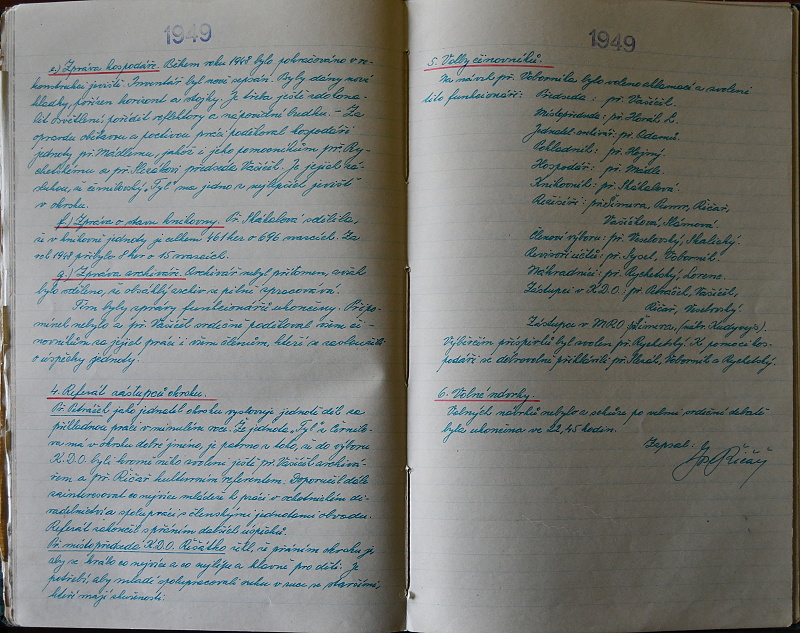 1949
e.) Zpráva hospodáře. Během roku 1948 bylo pokračováno v re-
konstrukci jeviště. Inventář byl nově sepsán. Byly dány nové
kladky, pořízen horizont a stojky. Je třeba ještě zdokona-
lit osvětlení, pořídit reflektory a nápovědní budku. - Za
opravdu obětavou a poctivou práci poděkoval hospodáři
jednoty př. Mádlemu, jakož i jeho pomocníkům př. Ry-
chetskému a př. Sterálovi předseda Vašíček. Je jejich zá-
sluhou, že čimelický "Tyl" má jedno z nejlepších jevišť
v okrsku.
f.) Zpráva o stavu knihovny. Př. Skákalová sdělila,
že v knihovně jednoty, je celkem 461 her o 696 svazcích. Za
rok 1948 přibylo 8 her o 15 svazcích.
g.) Zpráva archiváře. Archivář nebyl přítomen, avšak
bylo sděleno, že obsáhlý archiv se pilně zpracovává.
Tím byly zprávy funkcionářů ukončeny. Připo-
mínek nebylo a př. Vašíček srdečně poděkoval všem či-
novníkům za jejich práci i všem členům, kteří se zasloužili
o úspěchy jednoty!
4. Referát zástupců okrsku.
Př. Petráček jako jednatel okrsku vyslovuje jednotě dík za
příkladnou práci v minulém roce. Že jednota "Tyl"
má v okrsku dobré jméno, je patrno z toho, že do výboru
K.D.O. byli kromě něho zvoleni ještě př. Vašíček archivá-
řem a př. Říčař kulturním referentem. Doporučil dále
zainteresovat co nejvíce mládeže k práci v ochotnickém di-
vadelnictví a spolupráci s členskými jednotami obvodu.
Referát zakončil s přáním dalších úspěchů.
Př. místopředseda K.D.O. Řišátko řekl, že přáním okrsku je
aby se hrálo co nejvíce a co nejlépe a hlavně pro děti. Je
potřebí, aby mladé spolupracovali ruku v ruce se staršími,
kteří mají zkušenosti.
1949
5. Volby činovníků.
Na návrh př. Vobornika bylo voleno aklamací a zvoleni
tito funkcionáři: Předseda: př. Vašíček.
Místopředseda: př. L.
Jednatel: př. Adamů.
Pokladník: př. Hojný.
Hospodář: př. Mádle.
Knihovník: př. Skákalová.
Režiséři: Říčař,
Vašíčková,
Členové výboru: př. Veselovský, Skalický.
Revisoři účtů: př. Sysel, Voborník.
Náhradníci: př. Rychetský, Lorenc.
Zástupci v K.D.O. př. Petráček, Vašíček,
Říčař,
Zástupce v MRO
Výběrčím příspěvků byl zvolen př. Rychetský. K pomoci hos-
podáři se dobrovolně přihlásili př. Voborník a Rychetský.
6. Volné návrhy.
Volných návrhů nebylo a schůze po velmi srdečné debatě
byla ukončena ve 22,45 hodin.
Zapsal: Říčař